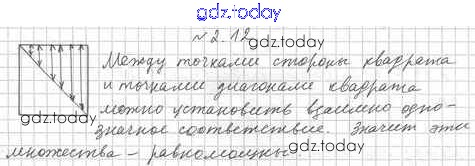 gdz.today
№2.12
gdz.today
Между точками стороны квадрата
и точками диагонали квадрата
можно установить взаимно одно-
значное соответствие. Значит эти
множества - равномощны.
gdz.today
gdz.today
gdz.today